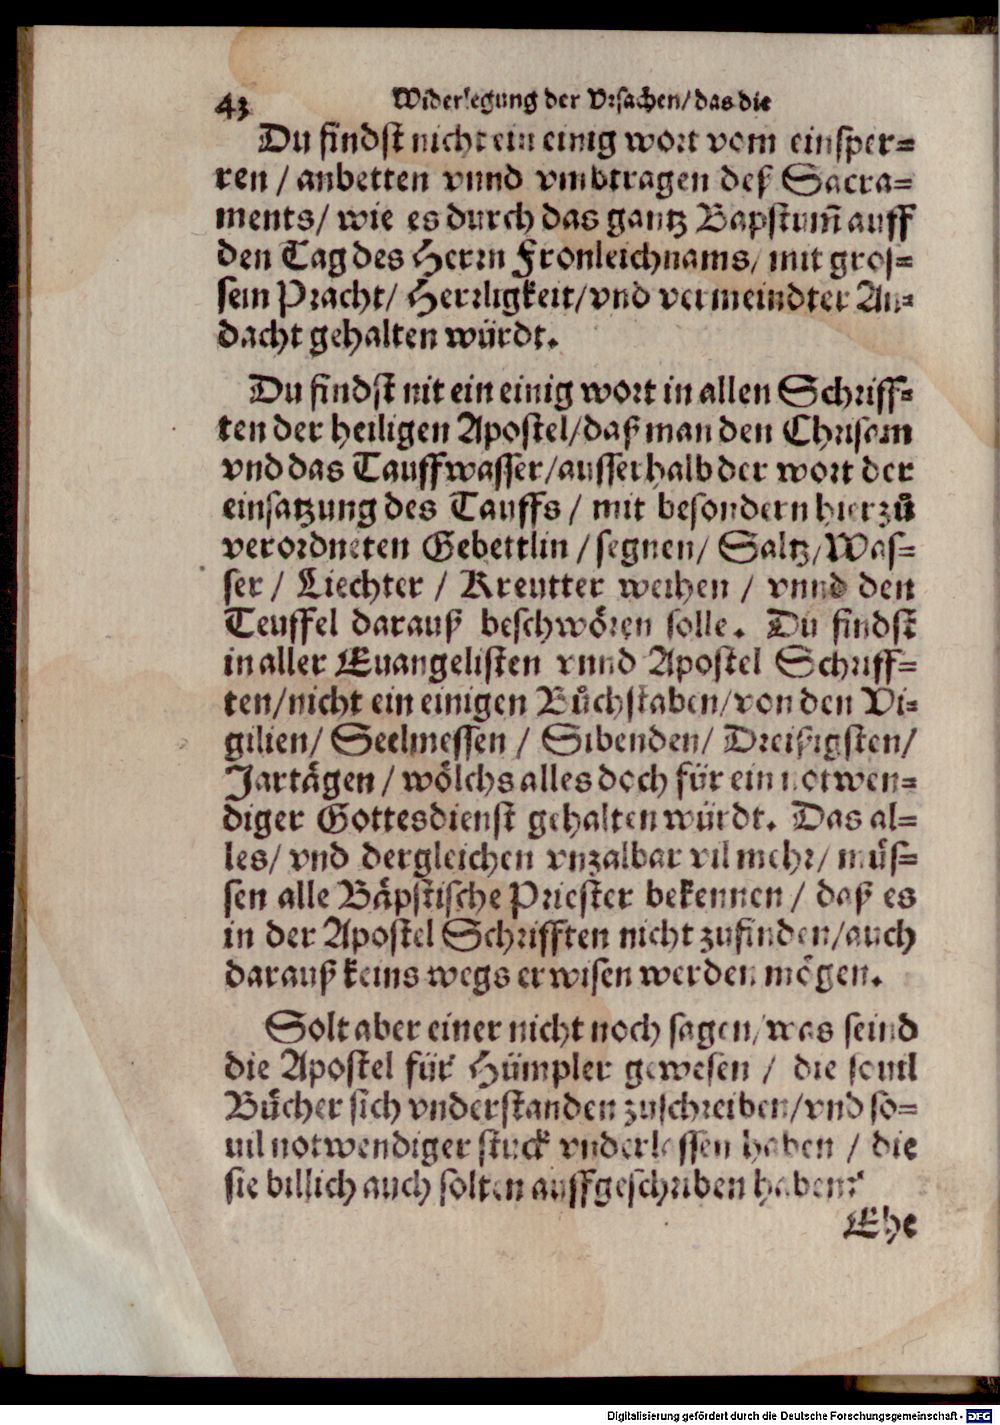 43 Widerlegung der Vrsachen/ das die
Du findst nicht ein einig wort vom einsper=
ren / anbetten vnnd vmbtragen deß Sacra=
ments/ wie es durch das gantz Bapstum̄ auff
den Tag des Herrn Fronleichnams/ mit gros=
sem Pracht/ Herrligkeit/ vnd vermeindter An=
dacht gehalten würdt.
Du findst nit ein einig wort in allen Schriff=
ten der heiligen Apostel/ daß man den Chrisam
vnd das Tauffwasser/ ausserhalb der wort der
einsatzung des Tauffs / mit besondern hierzů
verordneten Gebettlin / segnen/ Saltz/ Was=
ser / Liechter / Kreutter weihen / vnnd den
Teuffel darauß beschwören solle. Du findst
in aller Euangelisten vnnd Apostel Schriff=
ten/ nicht ein einigen Bůchstaben/ von den Vi=
gilien/ Seelmessen / Sibenden/ Dreißigsten/
Jartägen / wölchs alles doch für ein notwen=
diger Gottesdienst gehalten würdt. Das al=
les/ vnd dergleichen vnzalbar vil mehr/ müs=
sen alle Bäpstische Priester bekennen / daß es
in der Apostel Schrifften nicht zufinden/ auch
darauß keins wegs erwisen werden mögen.
Solt aber einer nicht noch sagen/ was seind
die Apostel für Hümpler gewesen / die souil
Bücher sich vnderstanden zuschreiben/ vnd so=
uil notwendiger stuck vnderlassen haben / die
sie billich auch solten auffgeschriben haben?
Ehe
Digitalisierung gefördert durch die Deutsche Forschungsgemeinschaft - DFG